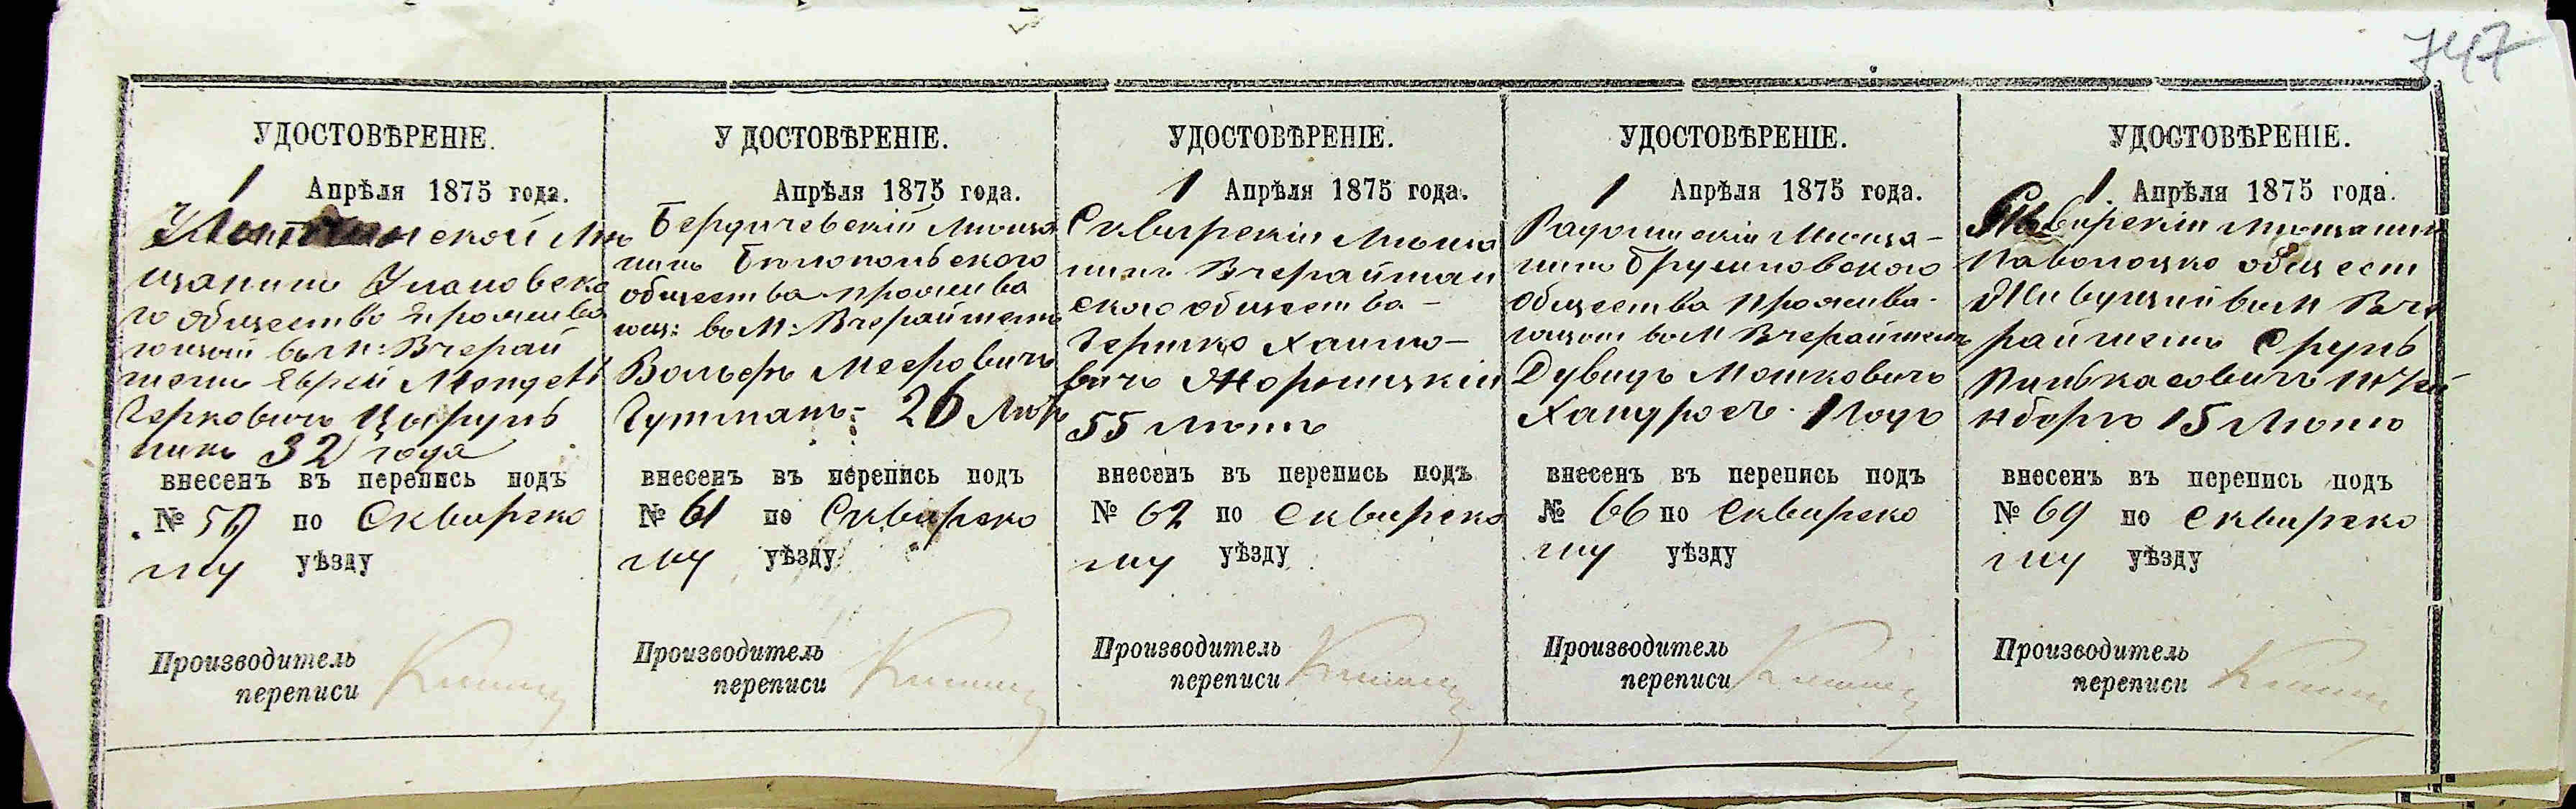 747
УДОСТОВѢРЕНІЕ.
1 Апрѣля 1875 года.
нской Мѣ
щанинъ Улановска
го общество прожива
ющій въ М: Вчерай
шемъ Еврей
Герковичъ Цыруль
никъ 32 года
внесенъ въ перепись подъ
№ по Сквирско
му уѣзду
Производитель
переписи
У ДОСТОВѢРЕНІЕ.
Апрѣля 1875 года.
Бердичевскій Мѣща
нинъ Бѣлопольского
общества прожива
ющ: въ М: Вчерайшемъ
Вольфъ Мееровичъ
Гутманъ - 26 Лѣтъ
внесенъ въ перепись подъ
№ 61 по Сквирско
му уѣзду
Производитель
переписи
УДОСТОВѢРЕНІЕ.
1 Апрѣля 1875 года.
Сквирскій Мѣща
нинъ Вчерайшан
ского общества -
Гершко Хаимо-
вичъ Жорницкій
55 Лѣтъ
внесенъ въ перепись подъ
№ 62 по Сквирско
му уѣзду
Производитель
переписи
УДОСТОВѢРЕНІЕ.
1 Апрѣля 1875 года.
Радомискій Мѣща-
нинъ Брусиловского
общества прожива-
ющій въ М Вчерайшемъ
Дувидъ Мошковичъ
Хандросъ 1 Годъ
внесенъ въ перепись подъ
№ 66 по Сквирско
му уѣзду
Производитель
переписи
УДОСТОВѢРЕНІЕ.
1 Апрѣля 1875 года.
Сквирскій Мѣщанин
Паволоцко общест
Живущий въ М Вче
райшемъ Сруль
Пинькасовичъ
нбергъ 15 Лѣтъ
внесенъ въ перепись подъ
№ 69 по Сквирско
му уѣзду
Производитель
переписи